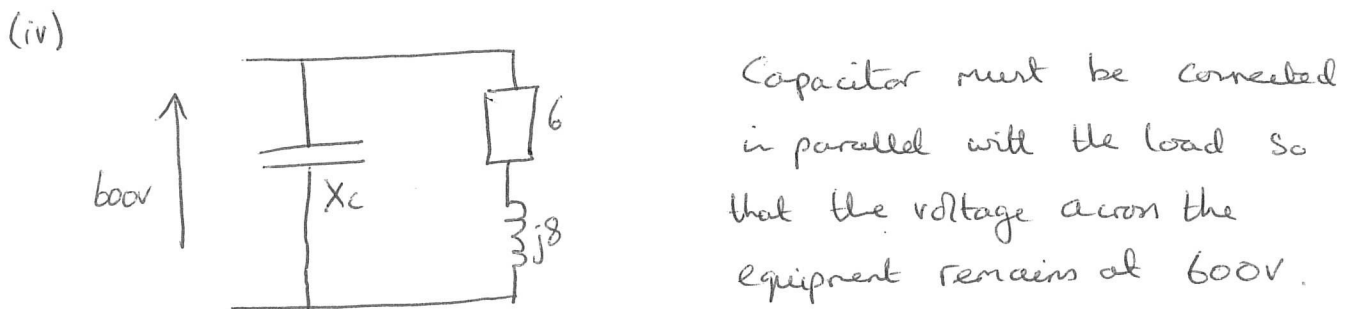 (iv)
600V
Xc
6
j8
Capacitor must be connected
in parallel with the load so
that the voltage across the
equipment remains at 600V.